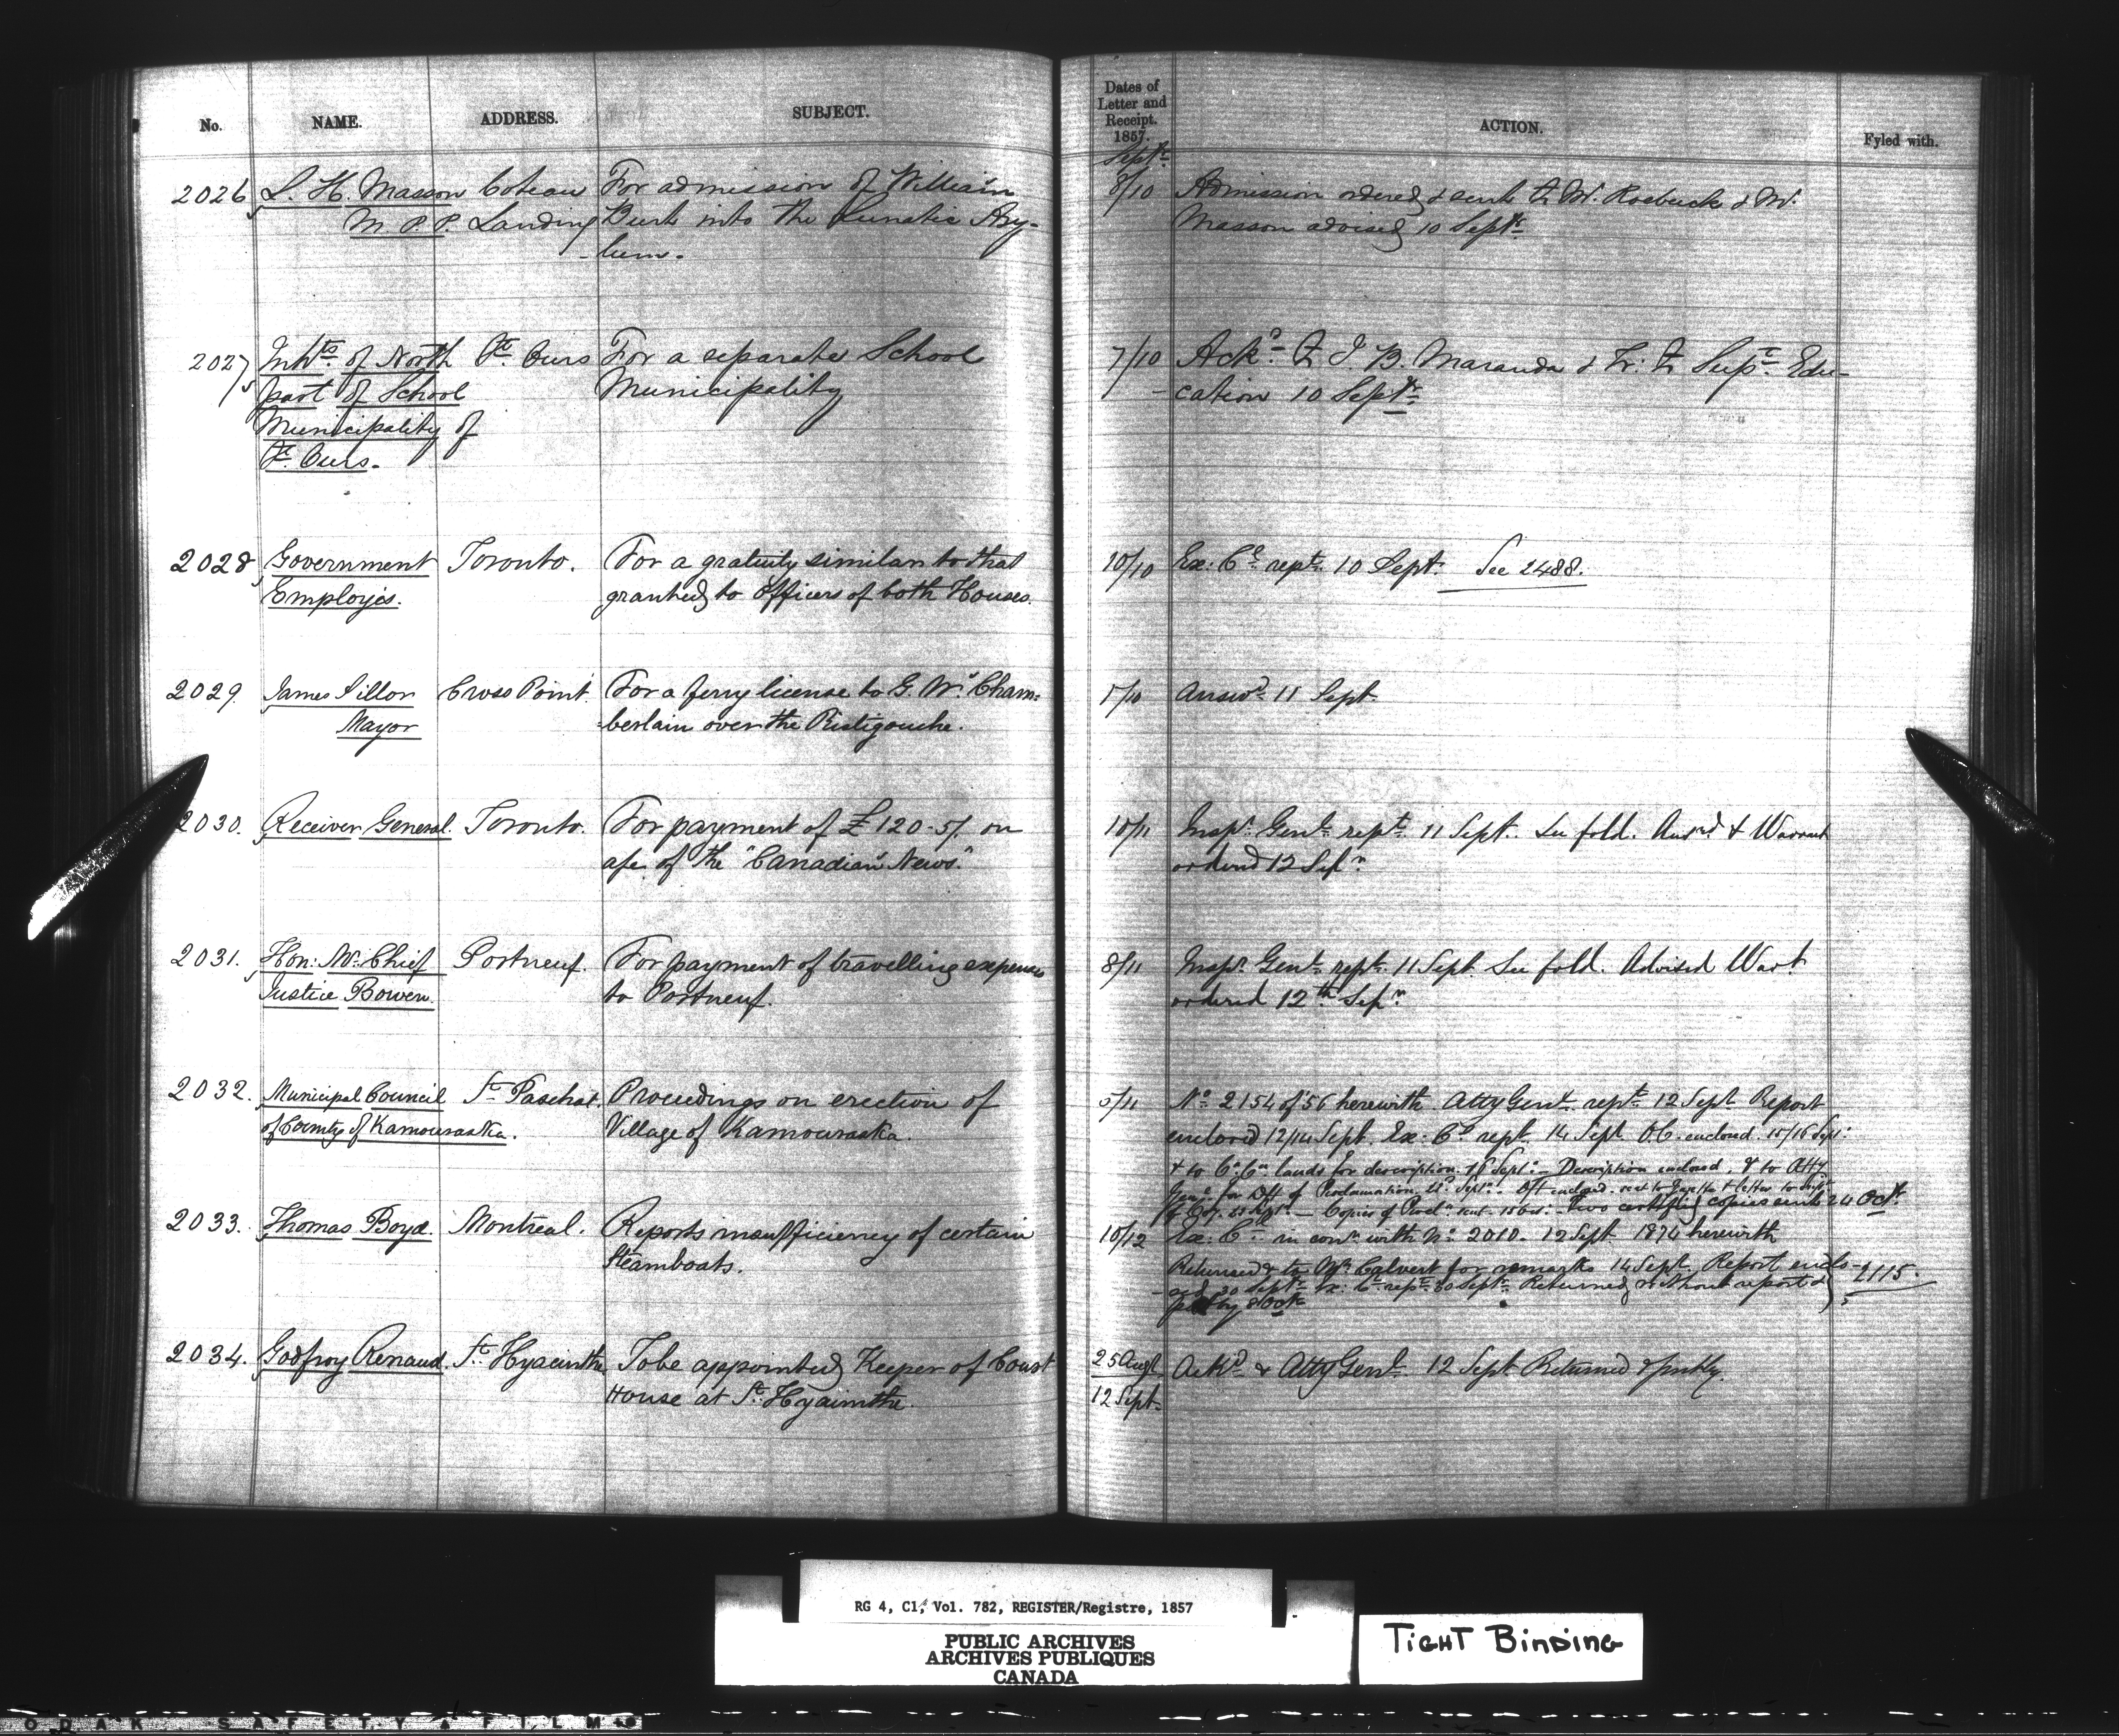 No. NAME. ADDRESS. SUBJECT.
2026 L. H. Masson Coteau For admission of William
M. P. P. Landing Burk into the Lunatic Asy-
-lum.
2027 Inhts of North St. Ours For a separate School
part of School Municipality
Municipality of
St. Ours.
2028 Government Toronto. For a gratuity similar to that
Employés. granted to Officers of both Houses.
2029. James Dillon Cross Point. For a ferry license to G. W. Cham=
Mayor =berlain over the Ristigouche.
2030. Receiver General. Toronto. For payment of £120-5/. on
a/c. of the "Canadian News."
2031. Hon: Mr. Chief Portneuf. For payment of travelling expenses
Justice Bowen. to Portneuf.
2032. Municipal Council St. Paschal. Proceedings on erection of
of County of Kamouraska. Village of Kamouraska.
2033. Thomas Boyd. Montreal. Reports insufficiency of certain
Steamboats.
2034. Godfroy Renaud. St. Hyacinthe To be appointed Keeper of Court
House at St. Hyacinthe.
Dates of
Letter and
Receipt.
1857. ACTION. Fyled with.
Septr.
8/10 Admission ordered & sent to Mr. Roebuck & Mr.
Masson advised 10 Septr.
7/10 Ackd. to J. B. Maranda & Tr. to Supt. Edu-
-cation 10 Septr.
10/10 Ex: Cl. rept. 10 Sept. See 2488.
/10 Answd. 11 Sept.
10/11 Inspr. Genl. rept. 11 Sept. See fold. Ansrd & Warrant
ordered 12 Sepr.
8/11 Inspr. Genl. rept. 11 Sept. See fold. Advised Wart.
ordered 12th Sepr.
5/11 No. 2154 of 56 herewith. Atty Genl. rept. 12 Sept. Report
enclosed 12/14 Sept. Ex: Cl. rept. 14 Sept. O.C. enclosed. 15/16 Sept.
& to Cr. Ln. lands for description. 16 Sept. - Description enclosed. & to Atty
Genl. for Dft of Proclamation. Sept. Dft enclosed. & letter to
Copies of Procln. sent. Two certified copies sent 24 Oct.
10/12 Ex: Cl. in conn. with No. 2010. 12 Sept 1874 herewith
Returned & to Mr. Calvert for remarks 14 Sept. Report enclo-
-sed 30 Septr. Ex: Cl. rept. 30 Septr. Returned without report & 2115.
8 Oct.
25 Augt. Ackd. & Atty Genl. 12 Sept Returned & putby.
12 Sept.
RG 4, C1, Vol. 782, REGISTER/Registre, 1857
PUBLIC ARCHIVES
ARCHIVES PUBLIQUES
CANADA
TIGHT BINDING
ODAK SAFETY FILM